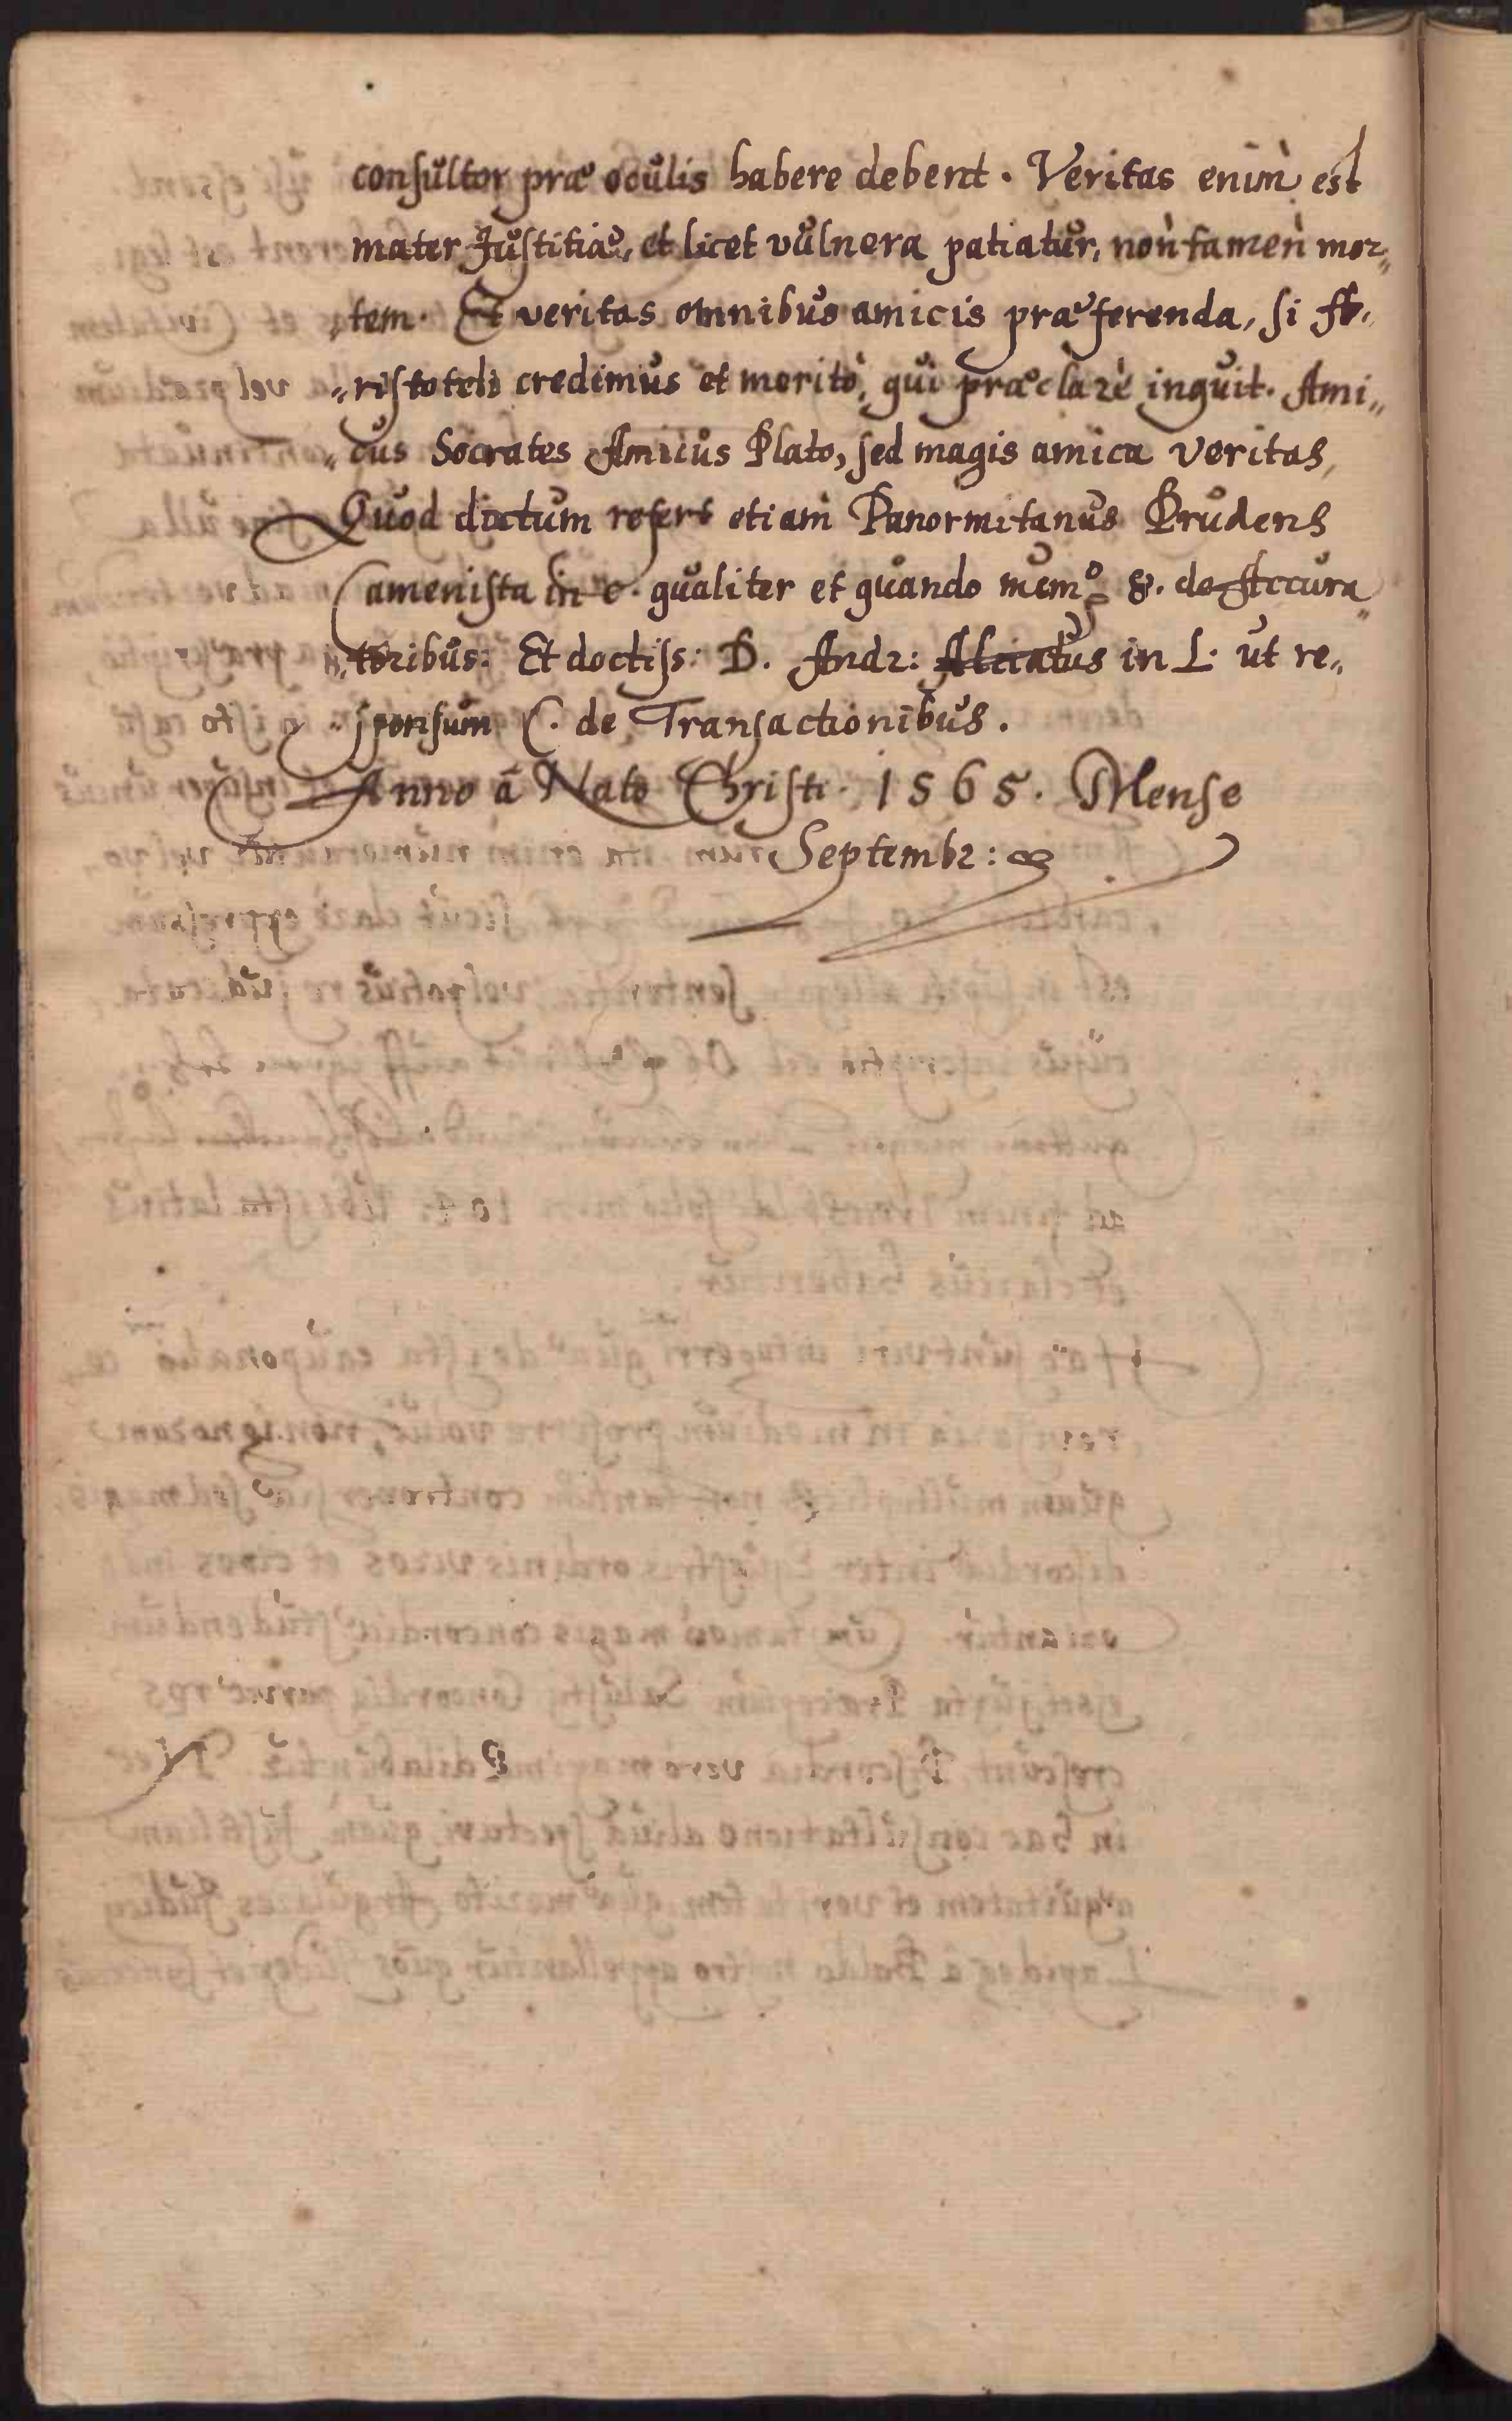 consultor præ oculis habere debent. Veritas enim est
mater Justitiæ, et licet vulnera patiatur, non tamen mor„
„tem. Et veritas omnibus amicis præferenda, si A„
„ristoteli credimus et meritò, qui præclarè inquit. Ami„
„cus Socrates Amicus Plato, sed magis amica veritas,
Quod dictum refert etiam Panormitanus Prudens
Camenista in c. qualiter et quando 8. de Accura„
„toribus: Et doctiss: D. Andr: Alciatus in L. ut re„
„sponsum C. de Transactionibus.
Anno à Nato Christi. 1565. Mense
Septembr: